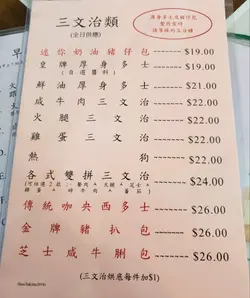 三文治類
(全日供應)
迷你奶油豬仔包 $19.00
皇牌厚身多士 $19.00
(自選醬料)
鮮油厚身多士 $21.00
咸牛肉三文治 $22.00
火腿三文治 $22.00
雞蛋三文治 $22.00
熱狗 $22.00
各式雙拼三文治 $24.00
傳統咖央西多士 $26.00
金牌豬扒包 $26.00
芝士咸牛脷包 $26.00
(三文治烘底每件加$1)
早